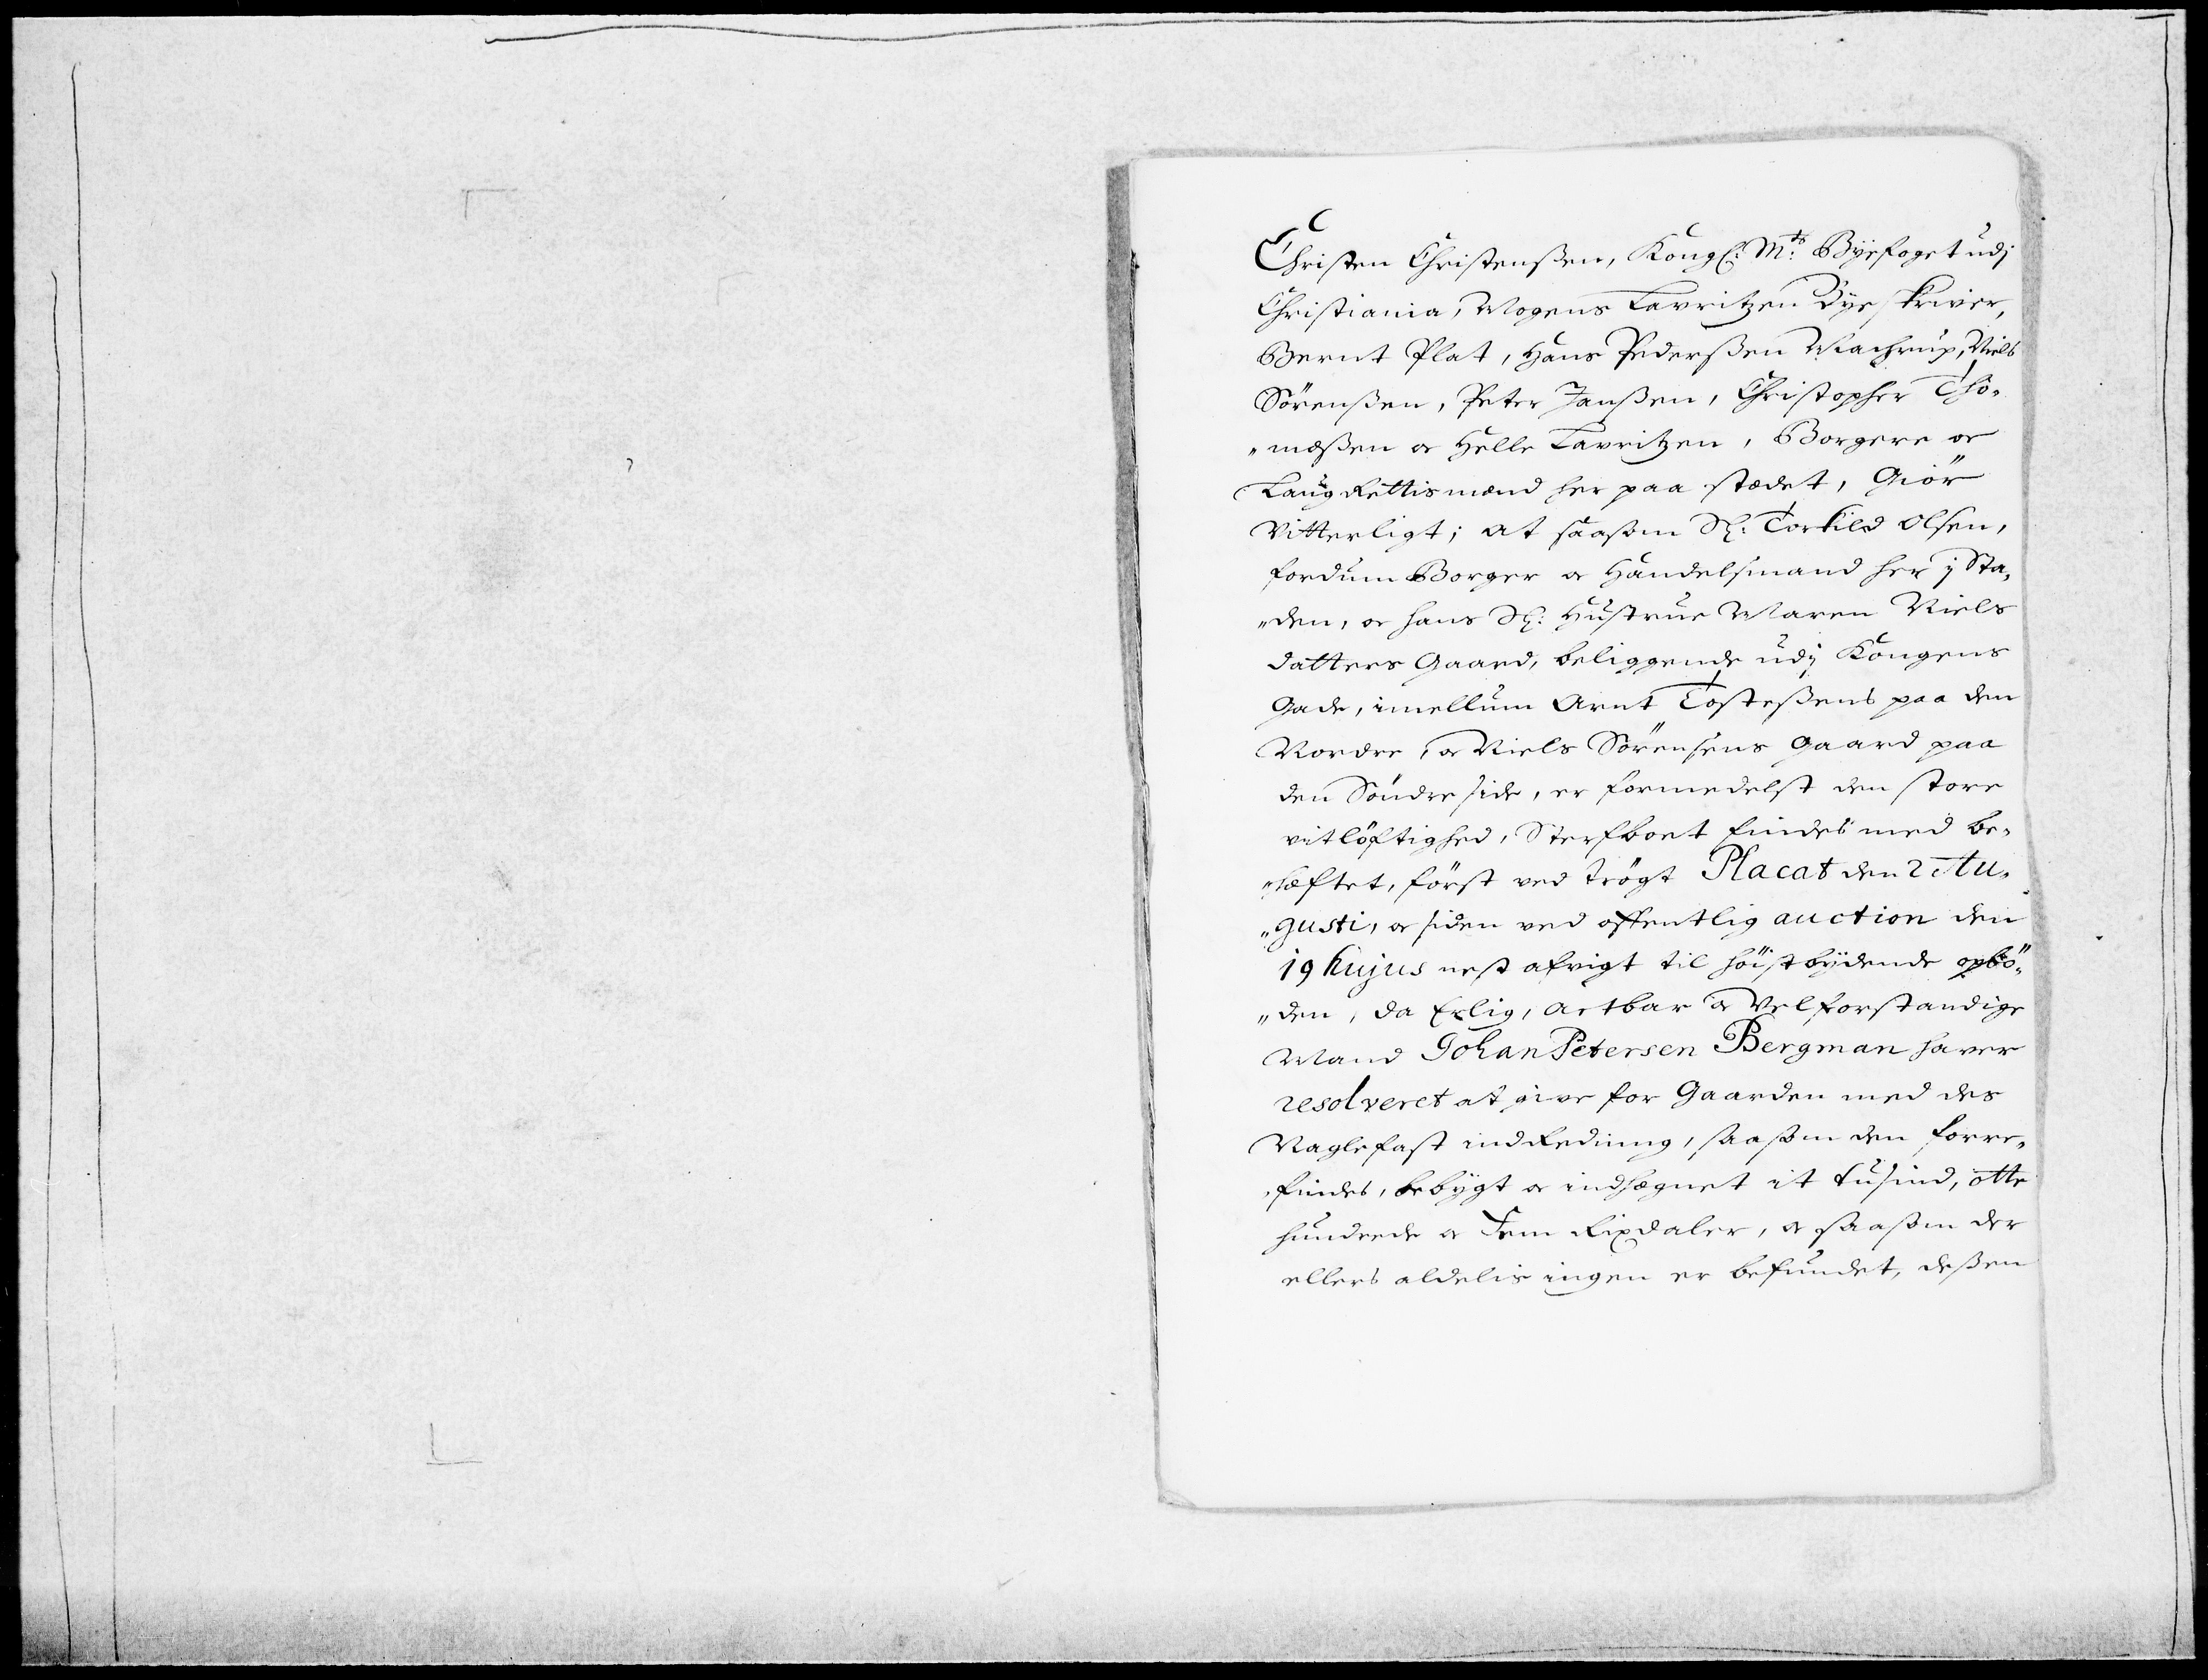 Christen Christenßen, Kongl: Mts: Byefoget udj
Christiania, Mogens Lavritzen Bye skriver,
Bernt Plat, Hans Pederßen Wachrup, Niels
Sörenßen, Peter Janßen, Christopher Tho„
„mæßen oc Helle Lavritzen, Borgere oc
Laug Rettismænd her paa stædet, Giör
Vitterligt; at saasom Sl: Torkild Olsen,
fordum Borger oc Handelsmand her j Sta„
„den, oc hans Sl: Hustrue Maren Niels
datters Gaard, beliggende udj Kongens
Gade, imellum Arnt Tosteßens paa den
Nordre, oc Niels Sörensens Gaard paa
den Söndre side, er formedelst den store
vitlöftighed, Sterfboet findes med be„
„hæftet, först ved trögt Placat den 2 Au„
„gusti, oc siden ved offentlig auction den
19 hujus nest afvigt til höistbydende opbö„
„den, da Erlig, Actbar oc Velforstandige
Mand Johan Petersen Bergman haver
resolveret at give for Gaarden med des
Naglefast indRedning, saasom den forre„
„findes, bebygt oc indhægnet it tusind, otte
hundrede oc Fem Rixdaler, oc saasom der
ellers aldelis ingen er befundet, deßen